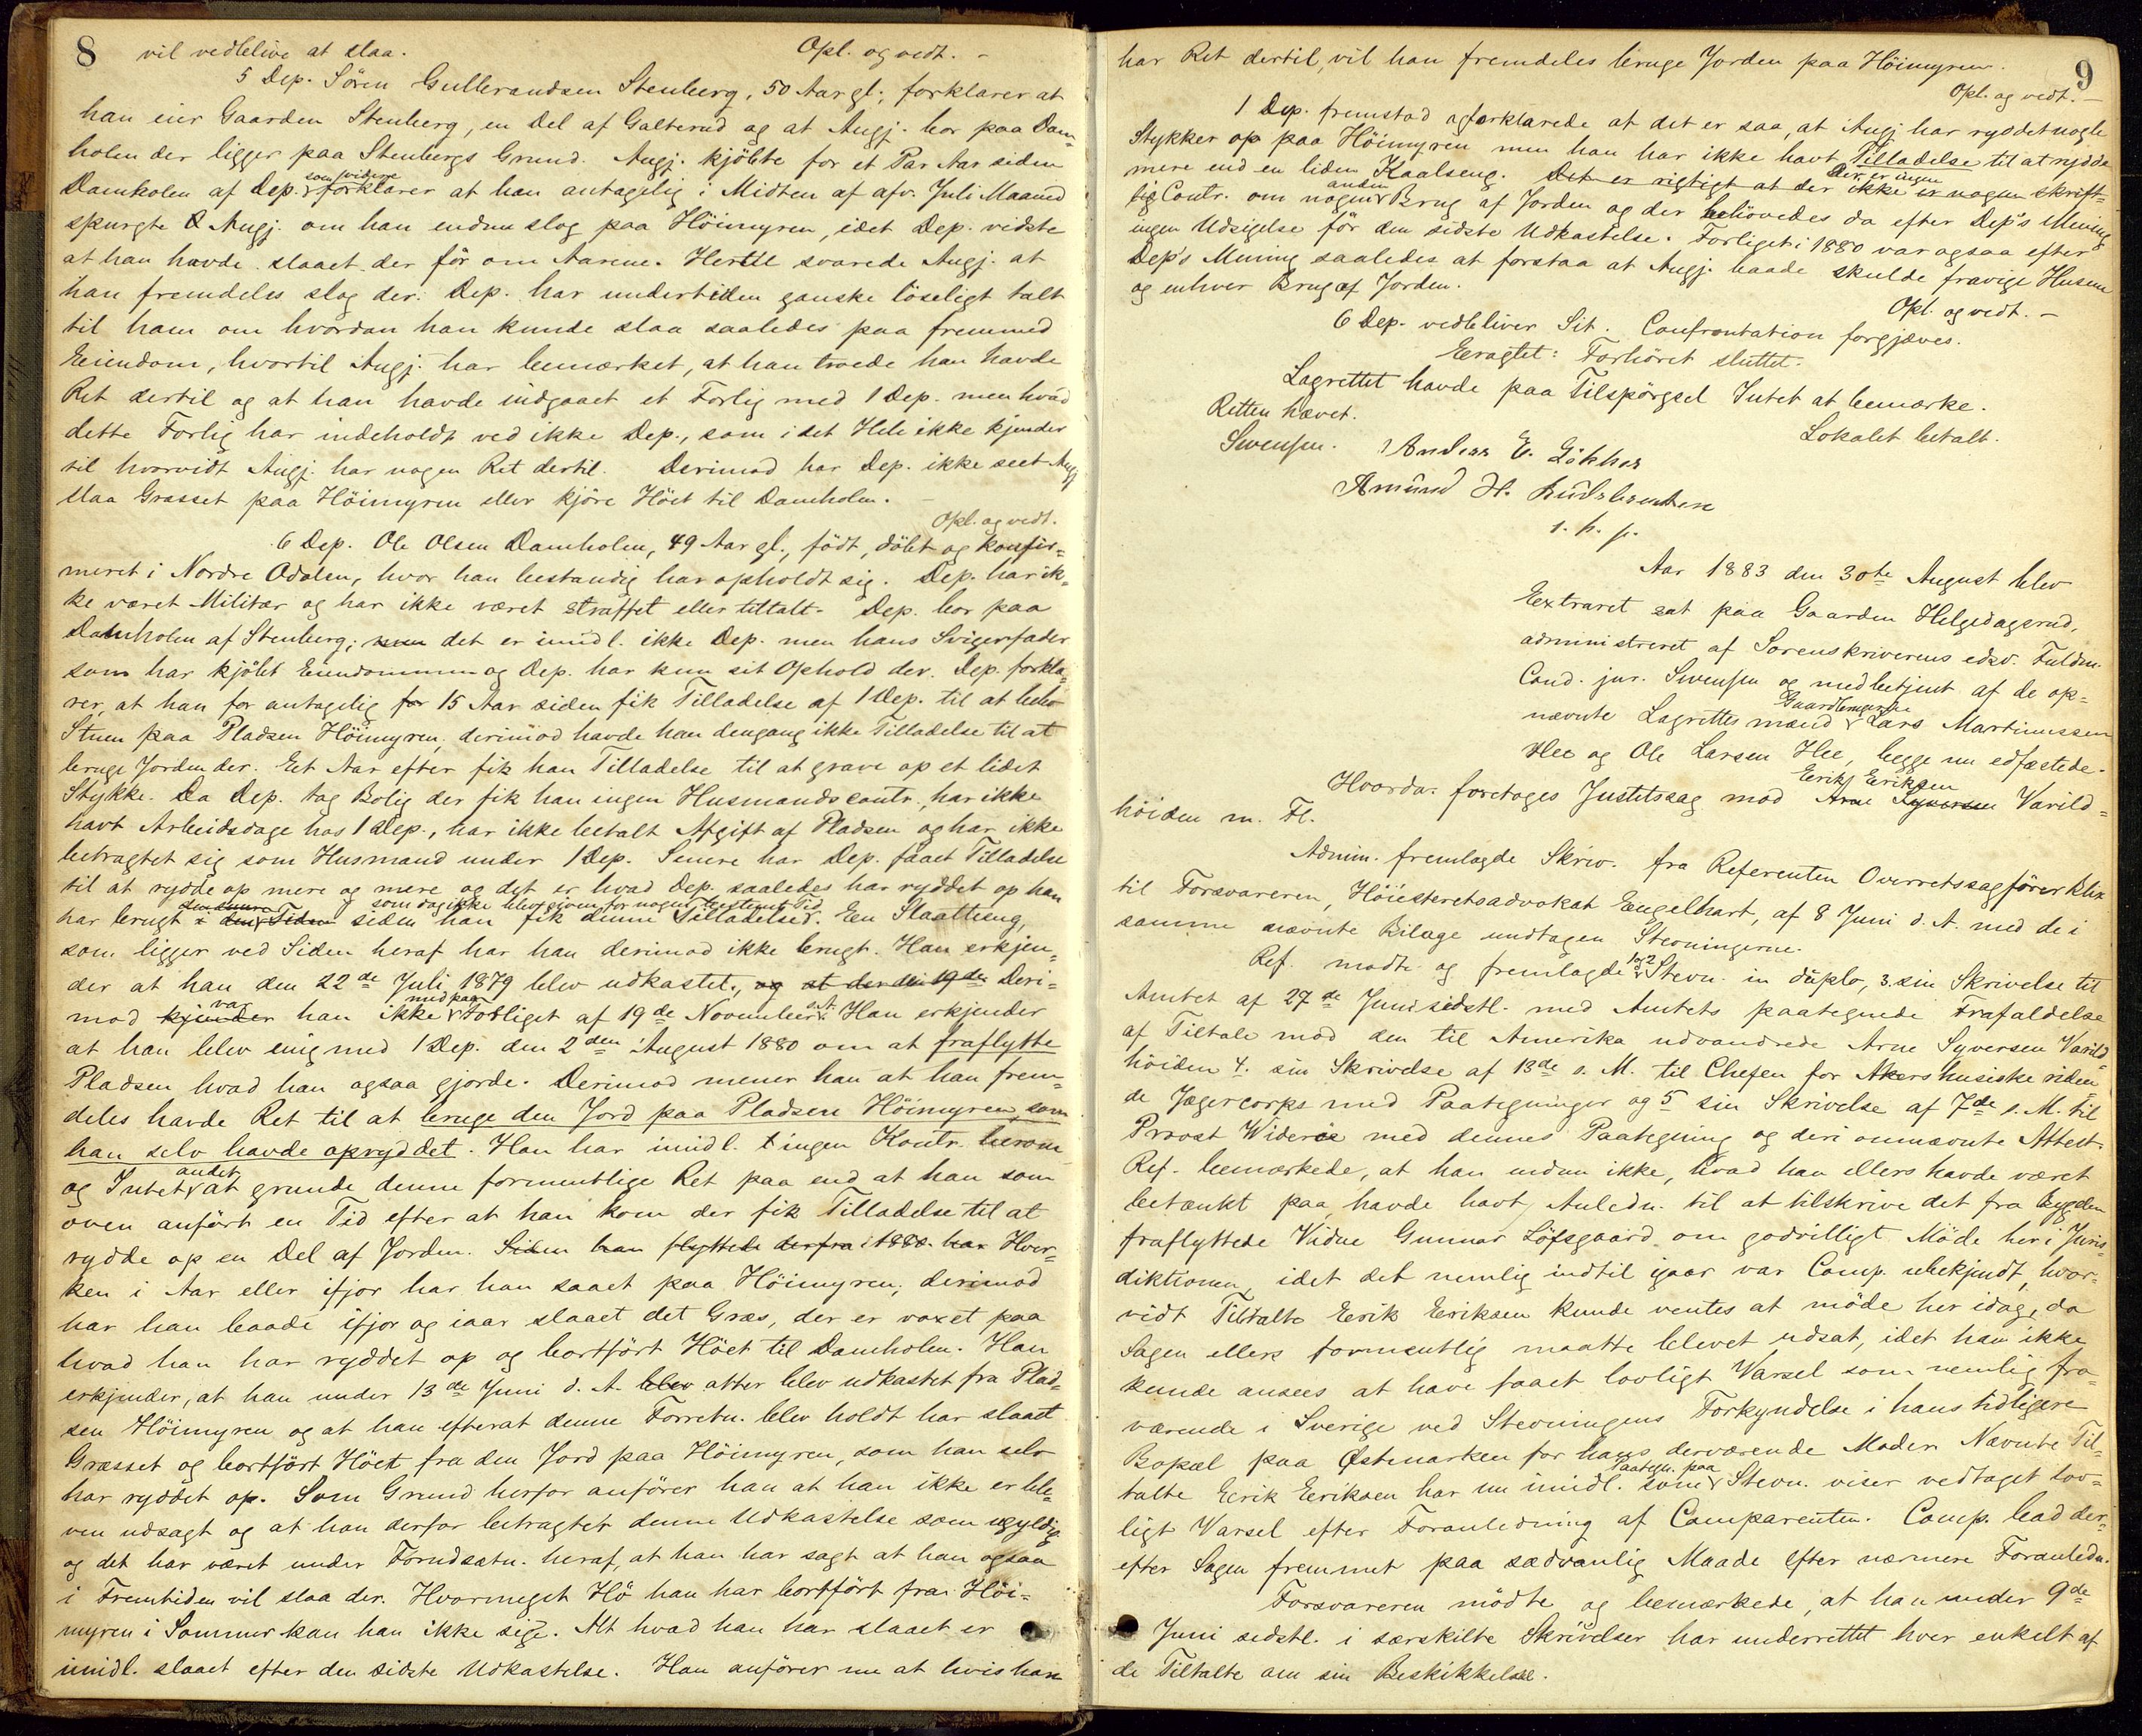 8
vil vedblive at slaa. Opl. og vedt. -
5 Dep. Sören Gulbrandsen Stenberg, 50 Aar gl., forklarer at
han eier Gaarden Stenberg, en Del af Galterud og at Angj. bor paa Dam-
holen der ligger paa Stenbergs Grund. Angj. kjöbte for et Par Aar siden
Damholen af Dep. som videre forklarer at han antagelig i Midten af afv. Juli Maaned
spurgte Angj. om han endnu slog paa Höimyren, idet Dep. vidste
at han havde slaaet der för om Aarene. Hertil svarede Angj. at
han fremdeles slog der. Dep. har undertiden ganske löseligt talt
til ham om hvordan han kunde slaa saaledes paa fremmed
Eiendom, hvortil Angj. har bemærket, at han troede han havde
Ret dertil og at han havde indgaaet et Forlig med 1 Dep. men hvad
dette Forlig har indeholdt ved ikke Dep., som i det Hele ikke kjender
til hvorvidt Angj. har nogen Ret dertil. Derimod har Dep. ikke seet Angj
slaa Græsset paa Höimyren eller kjöre Höet til Damholen. -
Opl. og vedt.
6 Dep. Ole Olsen Damholen, 49 Aar gl., födt, döbt og konfir=
meret i Nordre Odalen, hvor han bestandig har opholdt sig. Dep. har ik=
ke været Militær og har ikke været straffet eller tiltalt. Dep. bor paa
Damholen af Stenberg; men det er imidl. ikke Dep. men hans Svigerfader
som har kjöbt Eiendommen og Dep. har kun sit Ophold der. Dep. forkla=
rer, at han for antagelig for 15 Aar siden fik Tilladelse af 1 Dep. til at bebo
Stuen paa Pladsen Höimyren, derimod havde han dengang ikke Tilladelse til at
bruge Jorden der. Eet Aar efter fik han Tilladelse til at grave op et lidet
Stykke. Da Dep. tog Bolig der fik han ingen Husmandscontr., har ikke
havt Arbeidsdage hos 1 Dep., har ikke betalt Afgift af Pladsen og har ikke
betragtet sig som Husmand under 1 Dep. Senere har Dep. faaet Tilladelse
til at rydde op mere og mere og det er hvad Dep. saaledes har ryddet op han
har brugt i den senere Tiden siden han fik denne Tilladelse som dog ikke blev given for nogen bestemt Tid. En Slaatteeng,
som ligger ved Siden heraf har han derimod ikke brugt. Han erkjen=
der at han den 22de Juli 1879 blev udkastet, og at der den 19de Deri=
mod kjender var han ikke med paa Forliget af 19de November s. A. Han erkjender
at han blev enig med 1 Dep. den 2den August 1880 om at fraflytte
Pladsen hvad han ogsaa gjorde. Derimod mener han at han frem=
deles havde Ret til at bruge den Jord paa Pladsen Höimyren, som
han selv havde opryddet. Han har imidl. ingen Kontr. herom
og Intet andet at grunde denne formentlige Ret paa end at han som
oven anfört en Tid efter at han kom der fik Tilladelse til at
rydde op en Del af Jorden. Siden han flyttede derfra i 1880 har Hver=
ken i Aar eller ifjor har han saaet paa Höimyren, derimod
har han baade ifjor og iaar slaaet det Græs, der er voxet paa
hvad han har ryddet op og bortfört Höet til Damholen. Han
erkjender, at han under 13de Juni d. A. blev atter blev udkastet fra Plad=
sen Höimyren og at han efterat denne Forretn. blev holdt har slaaet
Græsset og bortfört Höet fra den Jord paa Höimyren, som han selv
har ryddet op. Som Grund herfor anförer han at han ikke er ble=
ven udsagt og at han derfor betragter denne Udkastelse som ugyldig
og det har været under Forudsætn. heraf, at han har sagt at han ogsaa
i Fremtiden vil slaa der. Hvormeget Hö han har bortfört fra Höi=
myren i Sommer kan han ikke sige. Alt hvad han har slaaet er
imidl. slaaet efter den sidste Udkastelse. Han anförer nu at hvis han
9
har Ret dertil, vil han fremdeles bruge Jorden paa Höimyren.
Opl. og vedt. -
1 Dep. fremstod og forklarede at det er saa, at Angj har ryddet nogle
Stykker op paa Höimyren men han har ikke havt Tilladelse til at rydde
mere end en liden Kaalseng. Det er rigtigt at der ikke er nogen Der er ingen skrift=
lig Contr. om nogen anden Brug af Jorden og der behövedes da efter Dep's Mening
ingen Udsigelse för den sidste Udkastelse. Forliget i 1880 var ogsaa efter
Dep's Mening saaledes at forstaa at Angj. baade skulde fravige Husene
og enhver Brug af Jorden.
Opl. og vedt. -
6 Dep. vedbliver Sit. Confrontation forgjæves.
Eragtet: Forhöret sluttet.
Lagrettet havde paa Tilspörgsel Intet at bemærke.
Retten hævet. Lokalet betalt.
Swensen. Anders E.
Amund H.
1. h. p.
Aar 1883 den 30te August blev
Extraret sat paa Gaarden Helgedagsrud,
administreret af Sorenskriverens edsv. Fuldm.
Cand. jur. Swensen og medbetjent af de op=
nævnte Lagrettesmænd Gaardbrugerne Lars Martinussen
Hee og Ole Larsen Hee, begge nu edfæstede.
Hvorda foretoges Justitssag mod Arne Syversen Erik Eriksen Varild=
höiden m. Fl.
Admin. fremlagde Skriv. fra Referenten Overretssagförer Klix
til Forsvareren, Höiesteretsadvokat Engelhart, af 8 Juni d. A. med de i
samme nævnte Bilage undtagen Stevningerne.
Ref. mødte og fremlagde 1 og 2 Stevn. in duplo, 3. sin Skrivelse til
Amtet af 27de Juni sidstl. med Amtets paategnede Frafaldelse
af Tiltale mod den til Amerika udvandrede Arne Syversen Varild=
höiden 4. sin Skrivelse af 13de s. M. til Chefen for Akershusiske riden=
de Jægercorps med Paategninger og 5 sin Skrivelse af 7de s. M. til
Provst Wideröe med dennes Paategning og deri omnævnte Attest.
Ref. bemærkede, at han endnu ikke, hvad han ellers havde været
betænkt paa, havde havt Anledn. til at tilskrive det fra Bygden
fraflyttede Vidne Gunnar Löfsgaard om godvilligt Möde her i Juris=
diktionen, idet det nemlig indtil igaar var Comp. ubekjendt, hvor=
vidt Tiltalte Erik Eriksen kunde ventes at möde her idag, da
Sagen ellers formentlig maatte blevet udsat, idet han ikke
kunde ansees at have faaet lovligt Varsel som nemlig fra=
værende i Sverige ved Stevningens Forkyndelse i hans tidligere
Bopæl paa Østmarken for hans derværende Moder. Nævnte Til=
talte Erik Eriksen har nu imidl. som Paategn. paa Stevn. viser vedtaget lov=
ligt Varsel efter Foranledning af Comparenten. Comp. bad der=
efter Sagen fremmet paa sædvanlig Maade efter nærmere Foranledn.
Forsvareren mödte og bemærkede, at han under 9de
Juni sidstl. i særskilte Skrivelser har underrettet hver enkelt af
de Tiltalte om sin Beskikkelse.